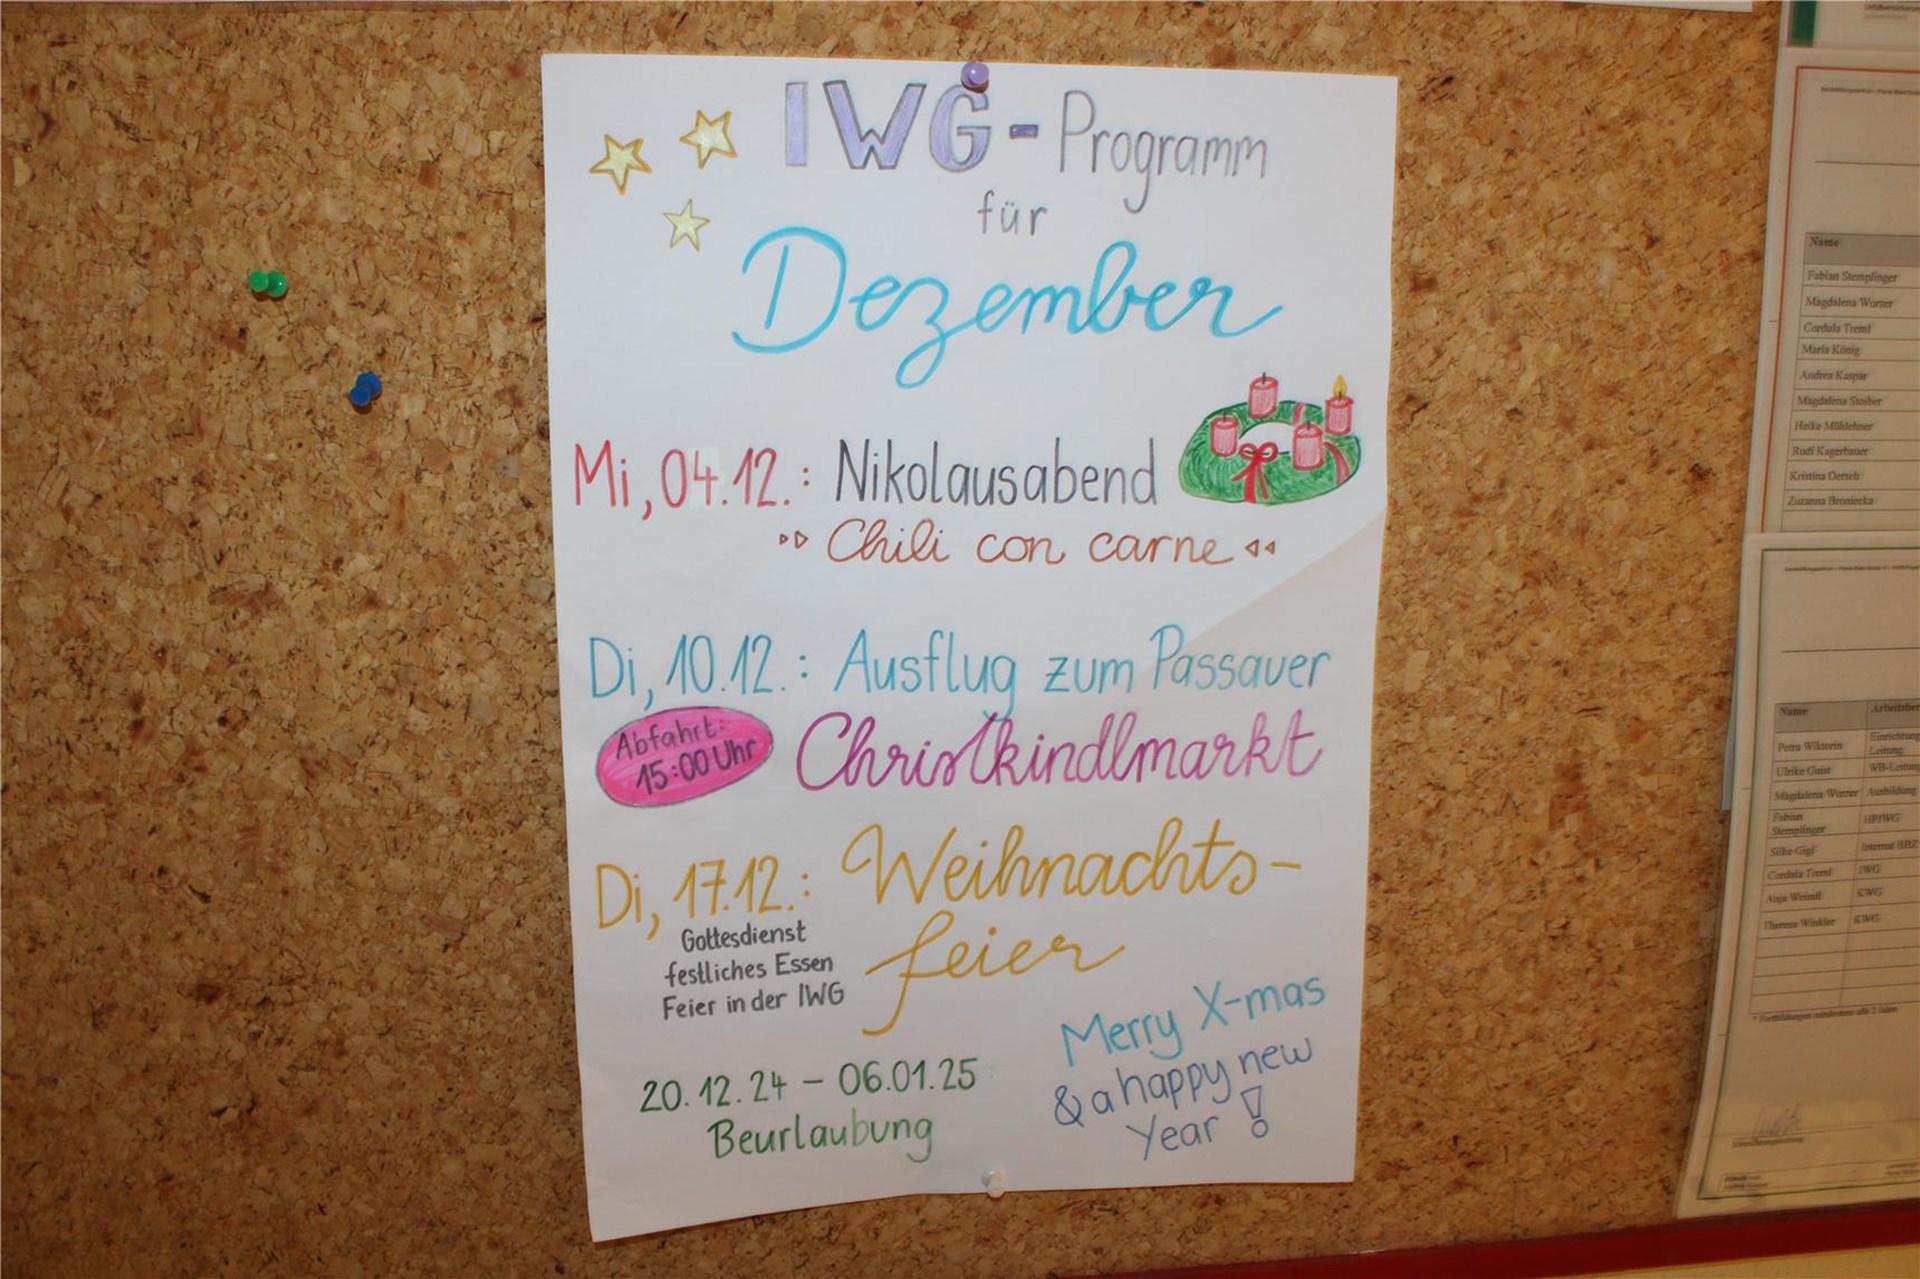 IWG-Programm
für
Dezember
Mi, 04.12.: Nikolausabend
Chili con carne
Di, 10.12.: Ausflug zum Passauer
Abfahrt:
15:00 Uhr
Christkindlmarkt
Di, 17.12.: Weihnachts-
feier
Gottesdienst
festliches Essen
Feier in der IWG
20.12.24 – 06.01.25
Beurlaubung
Merry X-mas
& a happy new
Year!
Name
Fabian Stemplinger
Magdalena Wurzer
Cordula Treml
Maria König
Andrea Kaspar
Magdalena Stoiber
Heike Mühlehner
Rudi Kagerbauer
Kristina Dersch
Zuzanna Broniecka
Name Arbeitsber
Petra Wiktorin Einrichtung
Leitung
Ulrike Gaisl WB-Leitung
Magdalena Wurzer Ausbildung
Fabian
Stemplinger HPIWG
Silke Gigl Internat BBZ
Cordula Treml IWG
Anja KWG
Theresa Winkler KWG
* Fortbildungen mindestens alle 2 Jahre